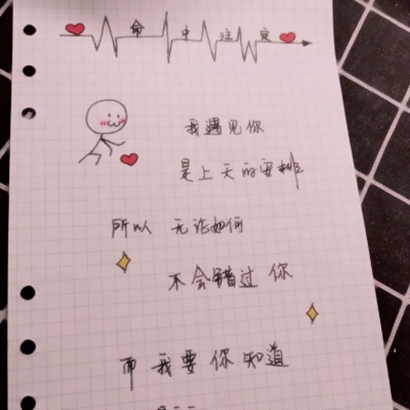 命中注定
我遇见你
是上天的安排
所以 无论如何
不会错过 你
而 我 要 你 知道